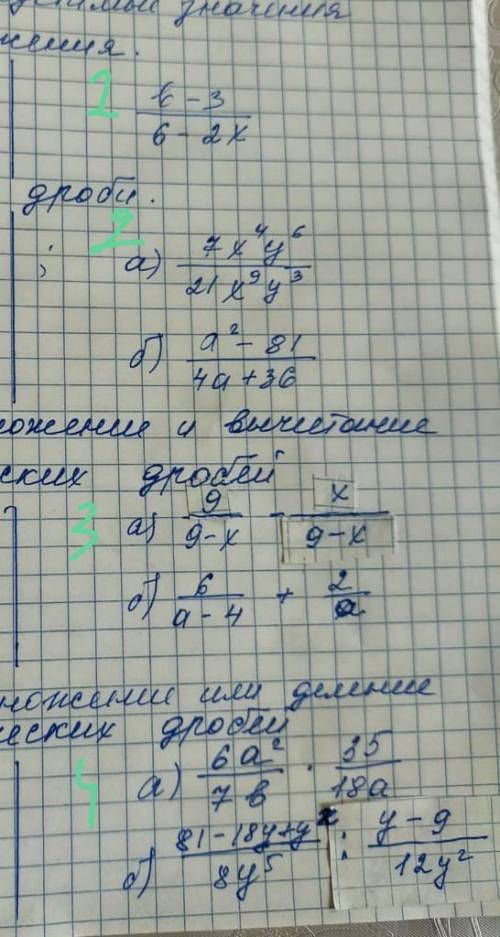 значения
жения.
1 \frac{b-3}{6-2x}
дроби.
; 2 а) \frac{7x^4y^6}{21x^9y^3}
б) \frac{a^2-81}{4a+36}
ожение и вычитание
ских дробей
3 а) \frac{9}{9-x} - \frac{x}{9-x}
б) \frac{6}{a-4} + \frac{2}{a}
ножение или деление
еских дробей
4 а) \frac{6a^2}{7b} · \frac{35}{18a}
б) \frac{81-18y+y^2}{8y^5} : \frac{y-9}{12y^2}